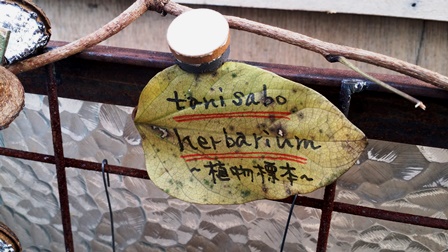 tanisabo
herbarium
~植物標本~